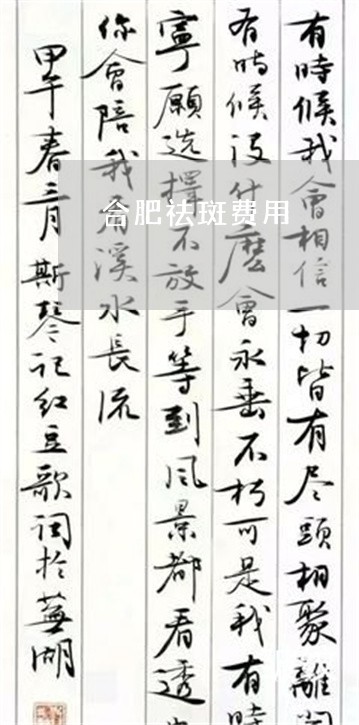 有時候我會相信一切皆有尽頭相聚離
有時候没什麽會永垂不朽可是我有時
寧願选擇不放手等到风景都看透
你會陪我看溪水長流
甲午春三月斯琴记红豆歌词於蕪湖
合肥祛斑费用